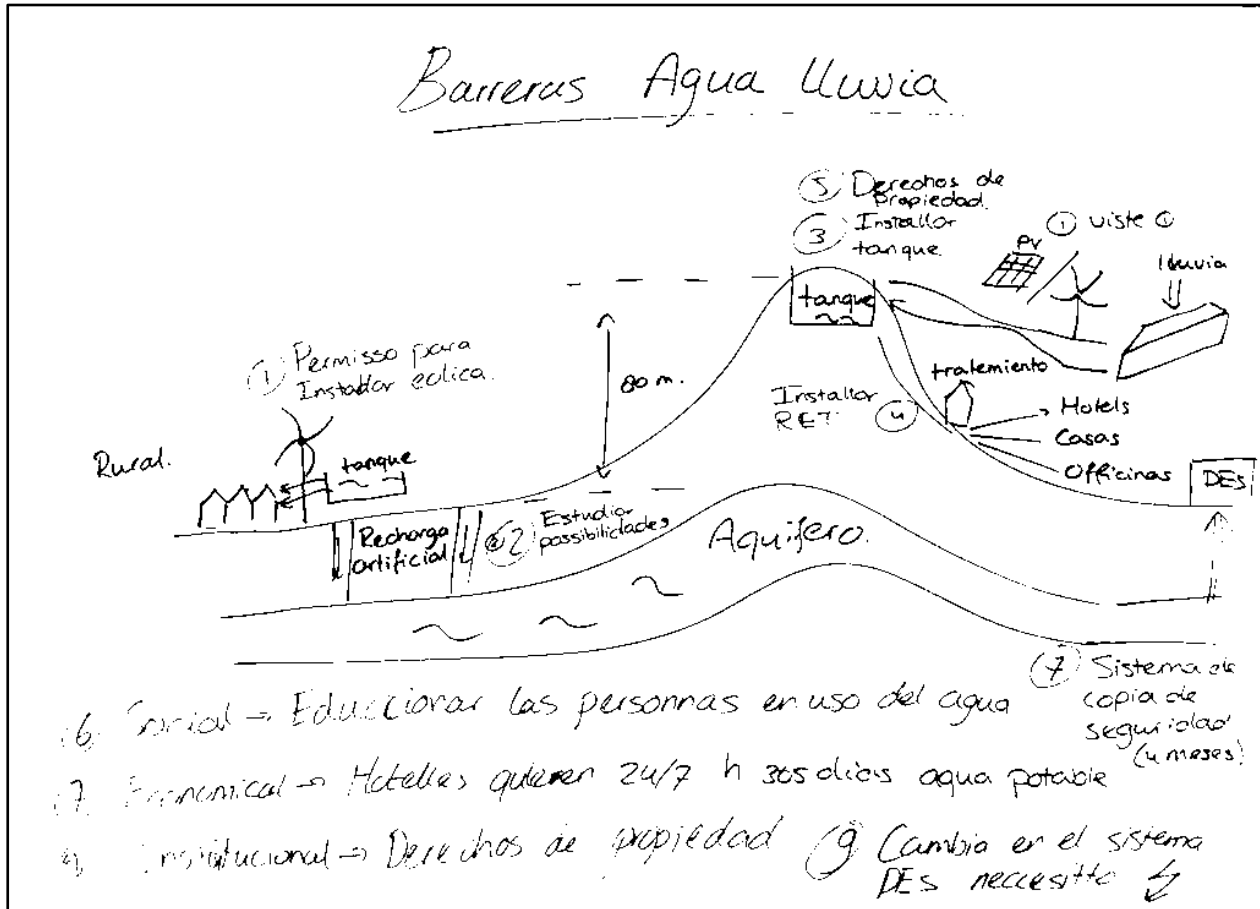 Barreras Agua lluvia
⑤ Derechos de
propiedad.
③ Installor
tanque.
PV
① viste ①
lluvia
tanque
① Permisso para
Instador eolica.
80 m.
tratemiento
Installor
RET.
④
Hotels
Casas
Officinas
Rural.
tanque
DEs
Recharga
artificial
2 Estudior
possibilidades
Aquifero.
⑦ Sistema de
copia de
seguridad
(4 meses)
6 Social → Educcionar las personnas en uso del agua
7 Economical → Hotelles quieren 24/7 h 365 dias agua potable
Institucional → Derechos de propiedad
⑨ Cambio en el sistema
DEs neccesitto